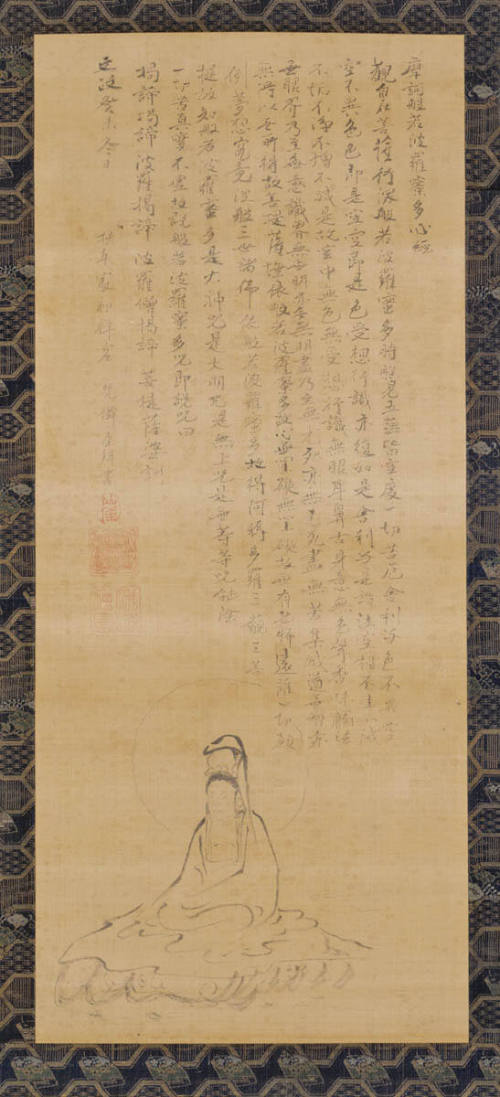 摩訶般若波羅蜜多心經
觀自在菩薩行深般若波羅蜜多時照見五蘊皆空度一切苦厄舍利子色不異空
空不異色色即是空空即是色受想行識亦復如是舍利子是諸法空相不生不滅
不垢不淨不增不減是故空中無色無受想行識無眼耳鼻舌身意無色聲香味觸法
無眼界乃至無意識界無無明亦無無明盡乃至無老死亦無老死盡無苦集滅道無智亦
無得以無所得故菩提薩埵依般若波羅蜜多故心無罣礙無罣礙故無有恐怖遠離一切顛
倒夢想究竟涅槃三世諸佛依般若波羅蜜多故得阿耨多羅三藐三菩
提故知般若波羅蜜多是大神咒是大明咒是無上咒是無等等咒能除
一切苦真實不虛故說般若波羅蜜多咒即說咒曰
揭諦揭諦波羅揭諦波羅僧揭諦菩提薩婆訶
癸未